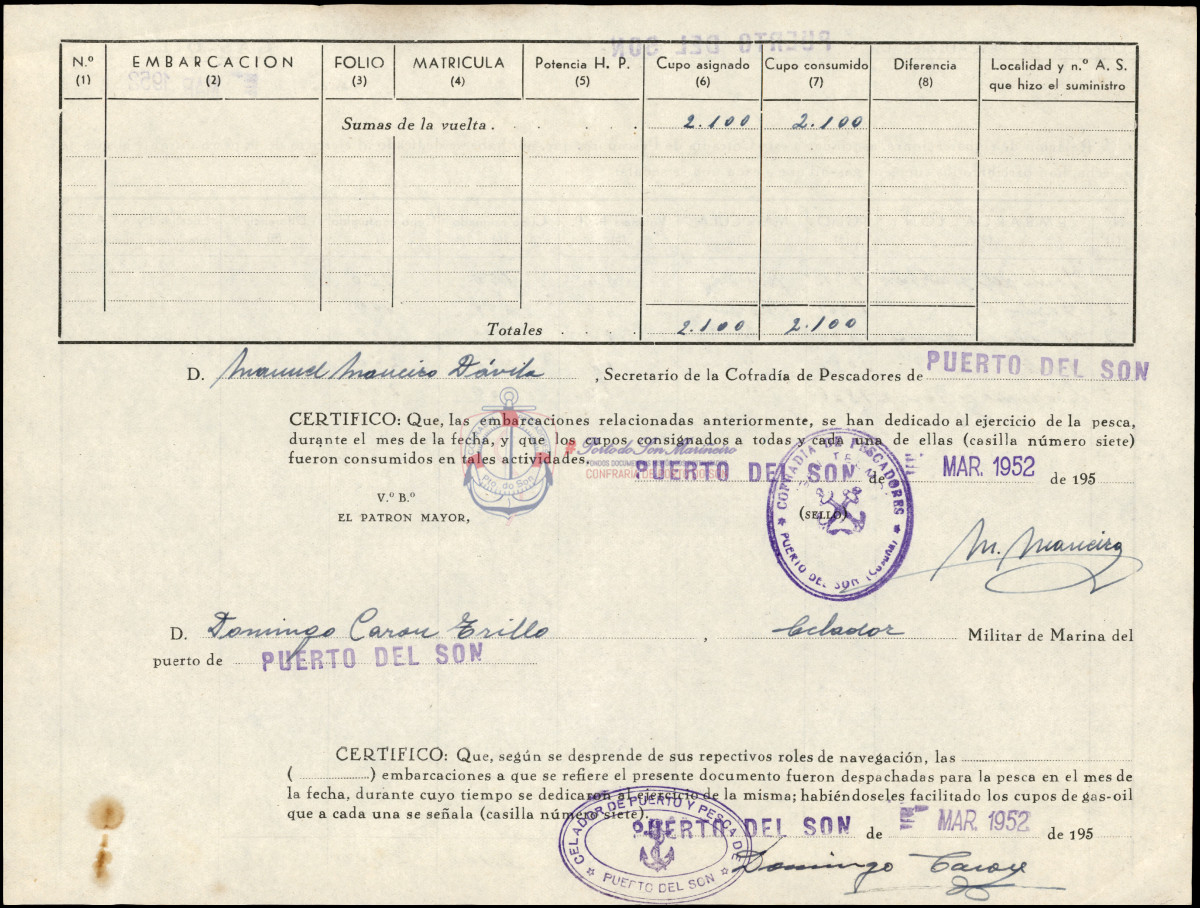 N.º EMBARCACION FOLIO MATRICULA Potencia H. P. Cupo asignado Cupo consumido Diferencia Localidad y n.º A. S. que hizo el suministro
(1) (2) (3) (4) (5) (6) (7) (8)
Sumas de la vuelta . . . . . 2.100 2.100
Totales . . . . 2.100 2.100
D. Manuel Maneiro Dávila , Secretario de la Cofradía de Pescadores de PUERTO DEL SON
CERTIFICO: Que, las embarcaciones relacionadas anteriormente, se han dedicado al ejercicio de la pesca,
durante el mes de la fecha, y que los cupos consignados a todas y cada una de ellas (casilla número siete)
fueron consumidos en tales actividades.
Porto do Son Marineiro
CONFRARÍA DE PORTO DO SON
Pto. do Son
PUERTO DEL SON de MAR. 1952 de 195
V.º B.º
EL PATRON MAYOR,
(SELLO)
COFRADIA DE PESCADORES
PUERTO DEL SON (Coruña)
M. Maneiro
D. Domingo Carou Trillo , Celador Militar de Marina del
puerto de PUERTO DEL SON
CERTIFICO: Que, según se desprende de sus repectivos roles de navegación, las
( ) embarcaciones a que se refiere el presente documento fueron despachadas para la pesca en el mes de
la fecha, durante cuyo tiempo se dedicaron al ejercicio de la misma; habiéndoseles facilitado los cupos de gas-oil
que a cada una se señala (casilla número siete).
PUERTO DEL SON de MAR. 1952 de 195
CELADOR DE PUERTO Y PESCA DE
PUERTO DEL SON
Domingo Carou